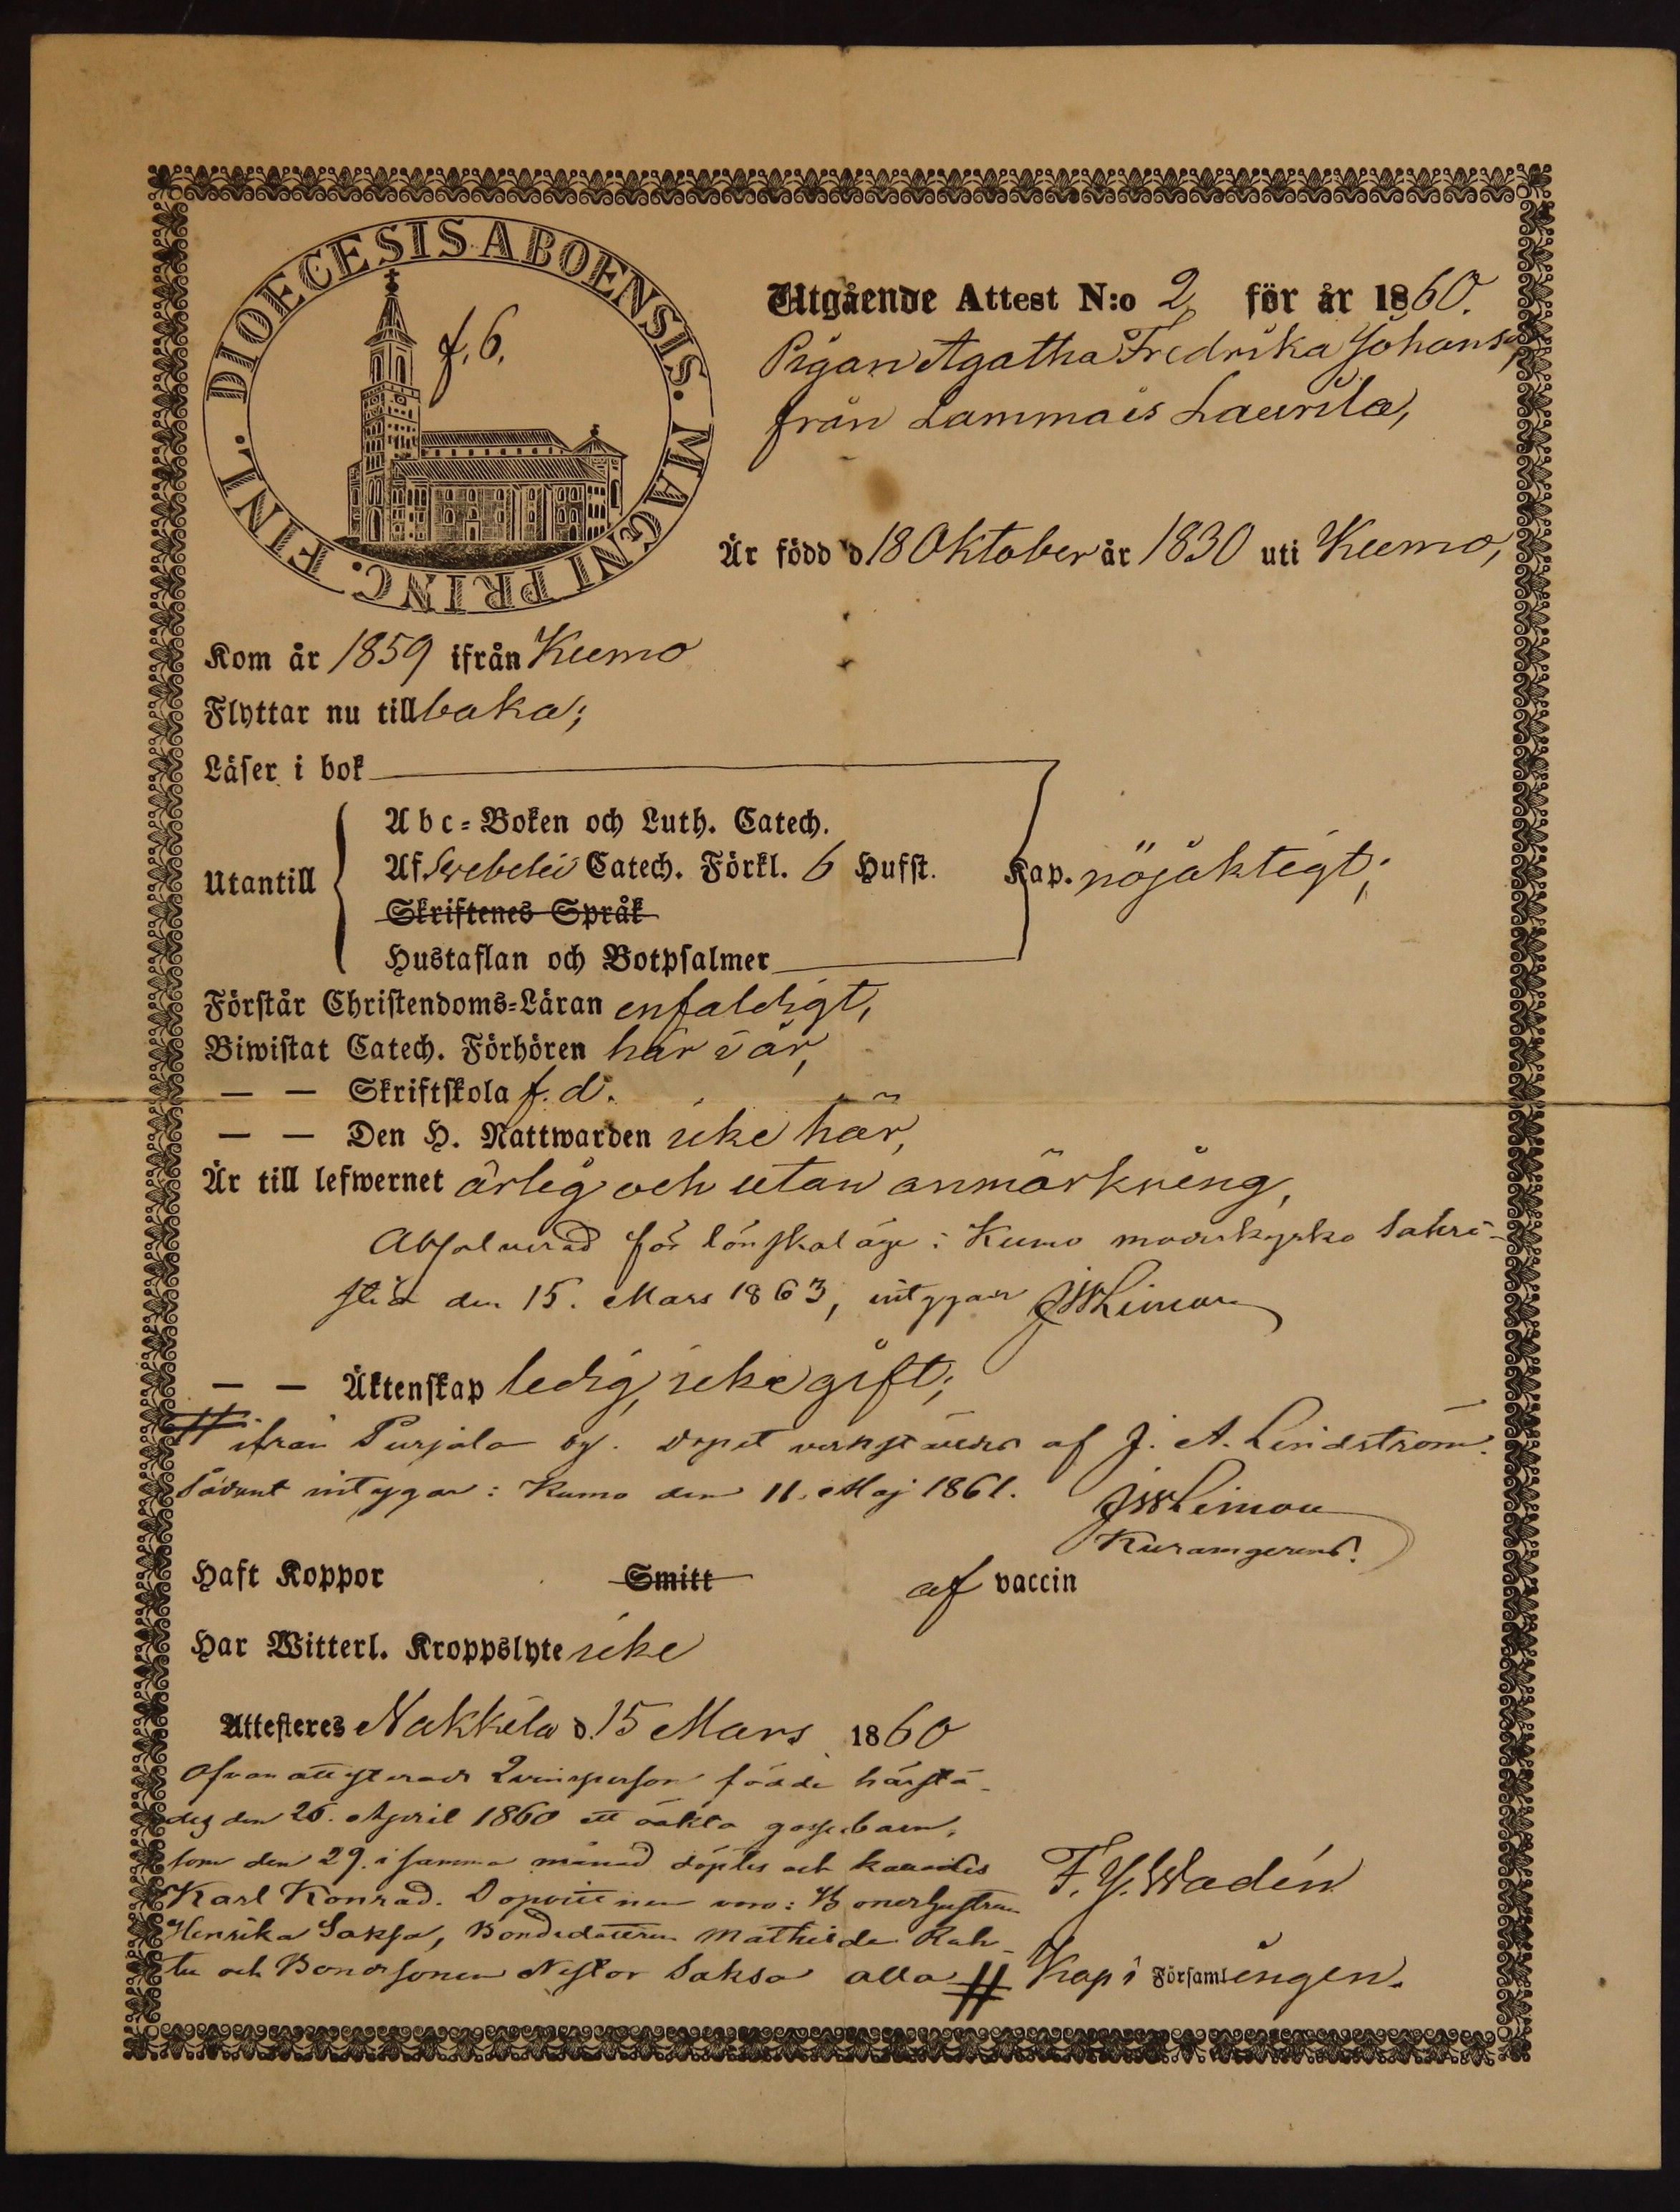 DIOECESIS ABOENSIS. MAGNI PRINC. FINL.
f. 6.
Utgående Attest N:o 2 för år 1860.
Pigan Agatha Fredrika Johansd:r
från Lammais Laurila,
Är född d 18 Oktober år 1830 uti Kumo,
Kom år 1859 ifrån Kumo
Flyttar nu tillbaka;
Läser i bok
Abc-Boken och Luth. Catech.
Utantill Af Svebelii Catech. Förkl. 6 Hufst. Kap. nöjaktigt;
Skriftenes Språk
Hustaflan och Botpsalmer
Förstår Christendoms-Läran enfaldigt,
Biwistat Catech. Förhören här i år,
— — Skriftskola f. d.
— — Den H. Nattwarden icke här,
Är till lefwernet ärlig och utan anmärkning,
Absolverad för lönskaläge i Kumo moderkyrko Sakri-
stia den 15. Mars 1863, intygar
— — Äktenskap ledig, icke gift;
# ifrån Purjala by. Dopet af J. A. Lindström.
Sådant intygar: Kumo den 11. Maj 1861.
Haft Koppor Smitt af vaccin
Har Witterl. Kroppslyte icke
Attesteres Nakkila d. 15 Mars 1860
Ofvan attesterade Qvinsperson födde härstä-
des den 26. April 1860 ett oäkta gossebarn,
som den 29. i samma månad döptes och kallades
Karl Konrad. Dopvittnen voro: Bondehustrun
Henrika Saksa, Bondedottren Mathilda Rah-
tu och Bondesonen Nestor Saksa alla #
F. Y. Wadén
Kap i Församlingen.